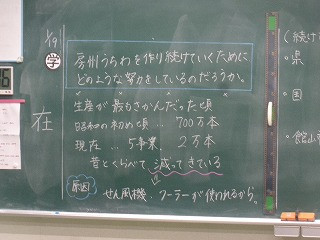 1/19
学
房州うちわを作り続けていくために
どのような努力をしているのだろうか。
生産が最もさかんだった頃
昭和の初め頃… 700万本
現在 … 5事業, 2万本
昔とくらべて減ってきている
原因 せん風機, クーラーが使われるから。
在
(続け
・県
・国
・館山